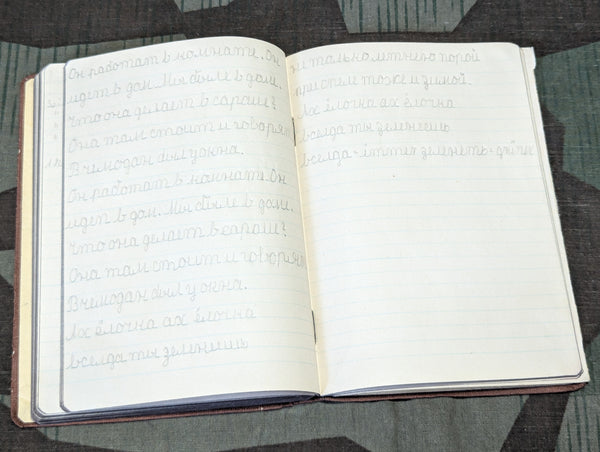 Он работат в комнате. Он
идет в дом. Мы были в дом.
Что она делает в сараш?
Она там стоит и говорят
В чемодан был у окна.
Он работат в комнате. Он
идет в дом. Мы были в доми.
Что она делает в сараш?
Она там стоит и говорят
В чемодан был у окна.
Ах ёлочка ах ёлочка
вселда ты зеленешь
тально летнею порой
при спем тоже и зимой.
Ах ёлочка ах ёлочка
вселда ты зеленешь
вселда = зеленеть =